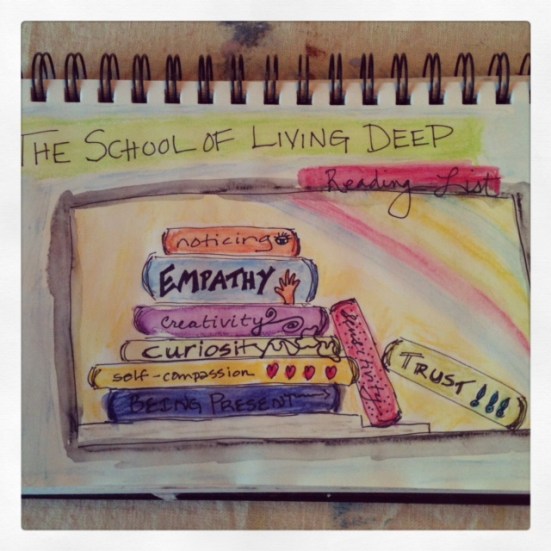 THE SCHOOL OF LIVING DEEP
Reading List
noticing
EMPATHY
creativity
curiosity
self-compassion
BEING PRESENT
Sensitivity
TRUST